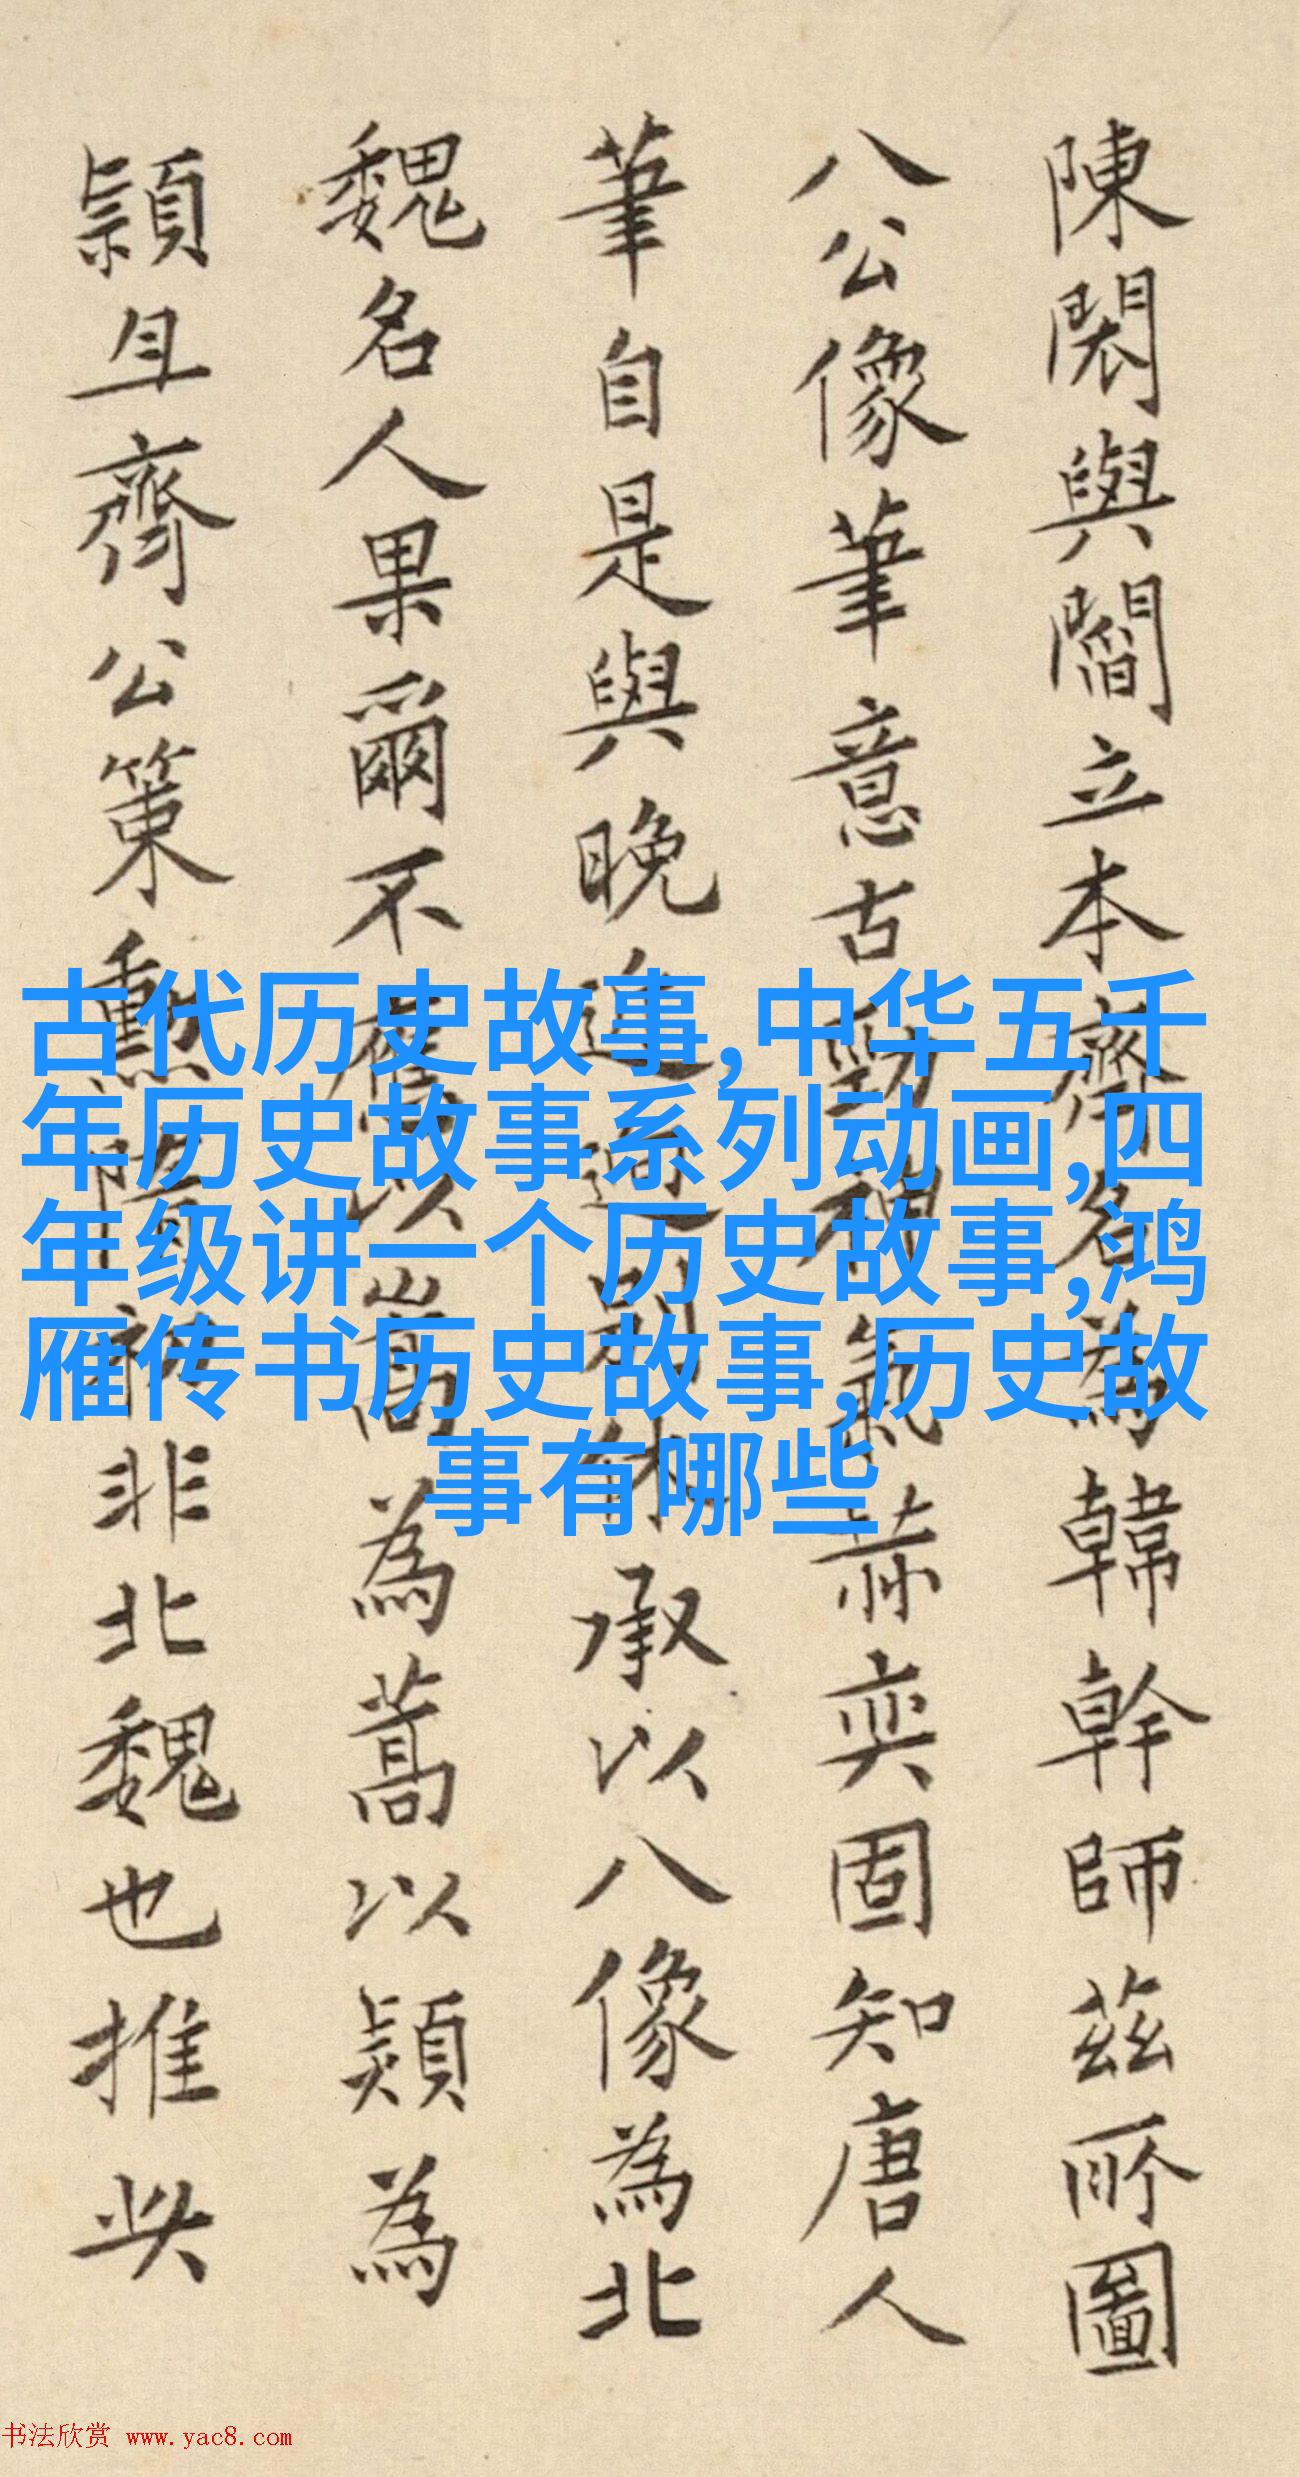 陳閎與閻立本齊名為韓幹師茲所圖
八公像筆意古勁氣赫奕固知唐人
筆自是與晚進迥別休承以八像為北
魏名人果爾不應以嵩為蒿以熲為
頴且齊公策勳隋初非北魏也推
古代历史故事,中华五千
年历史故事系列动画,四
年级讲一个历史故事,鸿
雁传书历史故事,历史故
事有哪些
书法欣赏 www.yac8.com